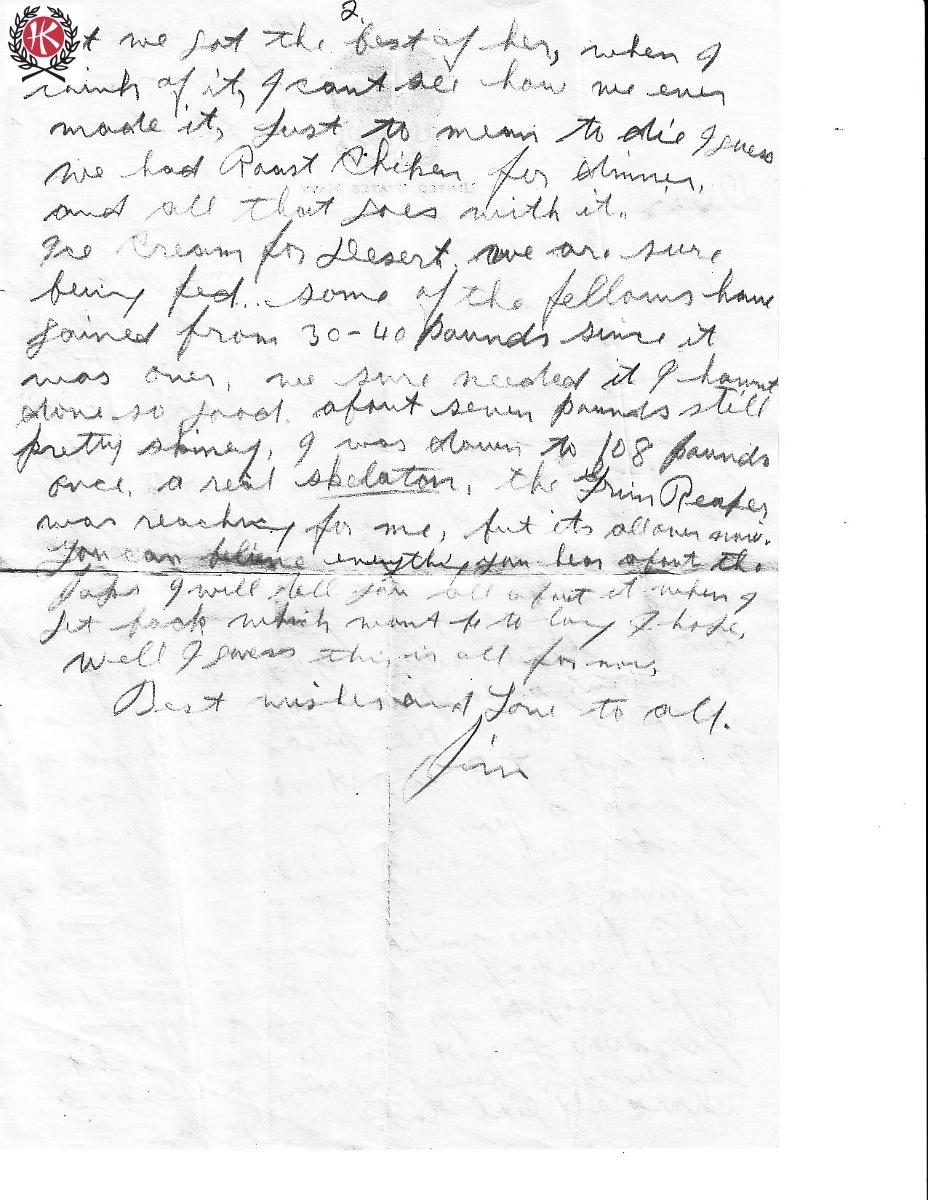 2.
HK
t we got the best of her, when I
think of it, I cant see how we ever
made it, Just to mean to die I guess
we had Roast Chiken for dinner,
and all that goes with it.
Ice Cream for Desert. we are sure
being fed.. some of the fellows have
gained from 30-40 pounds since it
was over, we sure needed it I havnt
done so good. about seven pounds still
pretty skiney, I was down to 108 pounds
once, a real skelaton, the Grim Reaper
was reaching for me, but its all over now.
You can believe everything you hear about the
Japs I will tell you all about it when I
get back which wont be to long I hope,
Well I guess this is all for now,
Best wishes and Love to all.
Jim